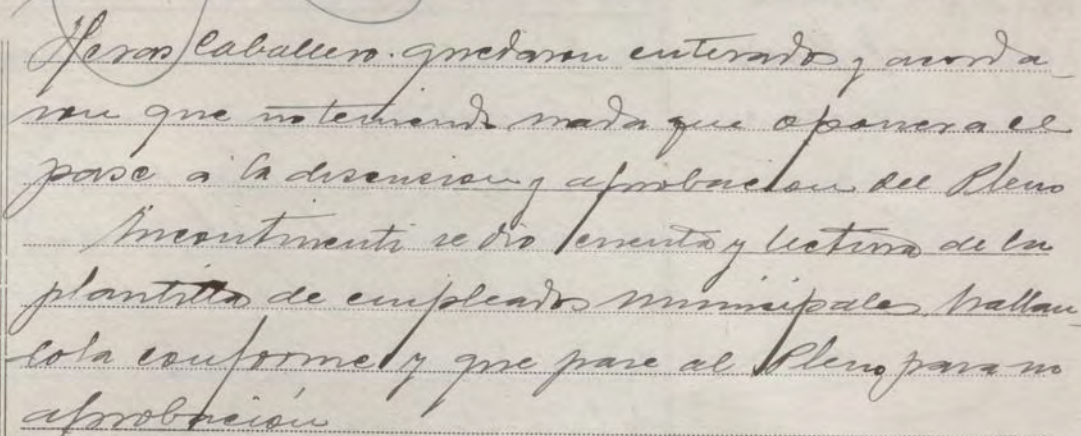 Heras Caballero. quedaron enterados y acorda-
ron que no teniendo nada que oponer a el
pase a la discusion y aprobacion del Pleno
Incontinenti se dio cuenta y lectura de la
plantilla de empleados municipales hallan-
dola conforme y que pase al Pleno para su
aprobación